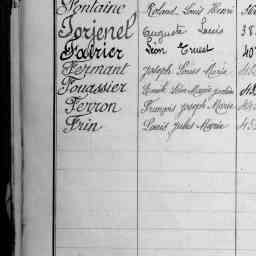 Fontaine Roland Louis Henri
Forjenel Auguste Louis 38
Fabrier Léon Ernest 40
Fermant Joseph Louis Marie
Fouassier Marie
Ferron François Joseph Marie
Frin Louis Jules Marie